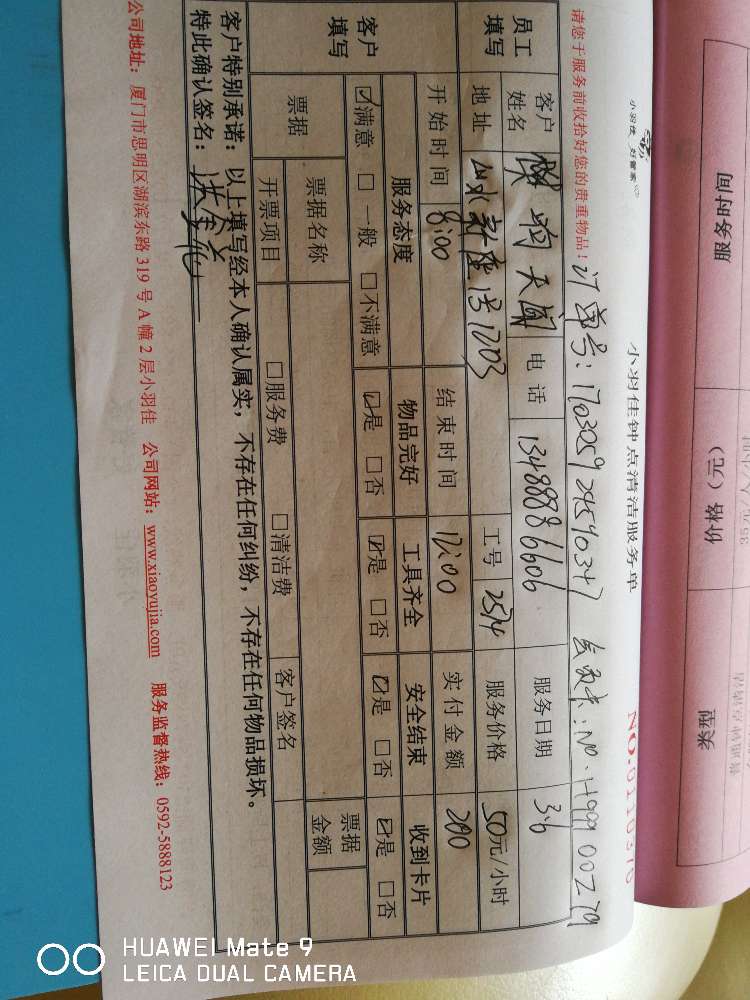 小羽佳 好管家
小羽佳钟点清洁服务单
NO.0110370
请您于服务前收拾好您的贵重物品!
订单号:170325924540347 会员卡:NO.H9990027
员工填写
客户姓名
电话 13488886606
服务日期 3.6
地址
工号 2574
服务价格 50元/小时
开始时间 8:00 结束时间 12:00 实付金额 200
客户填写
服务态度 物品完好 工具齐全 安全结束 收到卡片
☑满意 □一般 □不满意 ☑是 □否 ☑是 □否 ☑是 □否 ☑是 □否
票据 票据名称 票据金额
开票项目 □服务费 □清洁费 客户签名
客户特别承诺:以上填写经本人确认属实,不存在任何纠纷,不存在任何物品损坏。
特此确认签名:
公司地址:厦门市思明区湖滨东路 319 号 A 幢 2 层小羽佳 公司网站:www.xiaoyujia.com 服务监督热线:0592-5888123
服务时间 价格(元) 类型
HUAWEI Mate 9
LEICA DUAL CAMERA